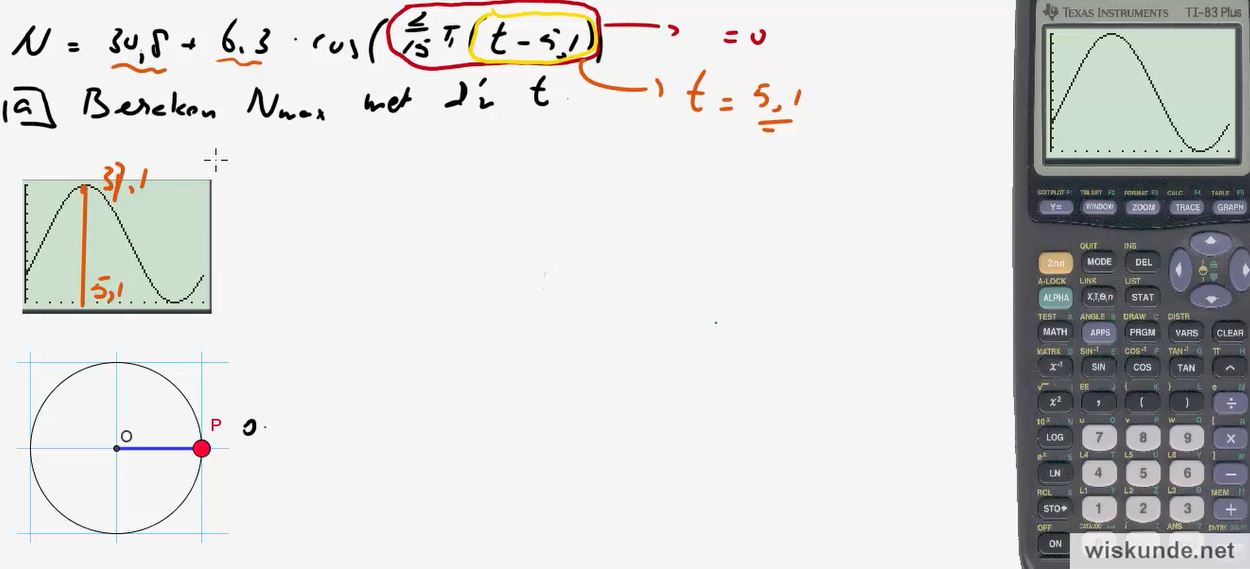 N = 30,8 + 6,3 · cos( 2/15 π ( t - 5,1) ) → = 0
1a) Bereken Nmax met d'n t → t = 5,1
37,1
5,1
O
P
0
TEXAS INSTRUMENTS TI-83 Plus
STAT PLOT F1 TBLSET F2 FORMAT F3 CALC F4 TABLE F5
Y= WINDOW ZOOM TRACE GRAPH
QUIT INS
2nd MODE DEL
A-LOCK LINK LIST
ALPHA X,T,Θ,n STAT
TEST A ANGLE B DRAW C DISTR
MATH APPS PRGM VARS CLEAR
MATRX D SIN⁻¹ E COS⁻¹ F TAN⁻¹ G π H
x⁻¹ SIN COS TAN ^
√ I EE J { K } L e M
x² , ( ) ÷
10ˣ N u O v P w Q [ R
LOG 7 8 9 X
eˣ S L4 T L5 U L6 V ] W
LN 4 5 6 −
RCL X L1 Y L2 Z L3 θ MEM "
STO 1 2 3 +
OFF CATALOG i : ANS ? ENTRY SOLVE
ON
wiskunde.net